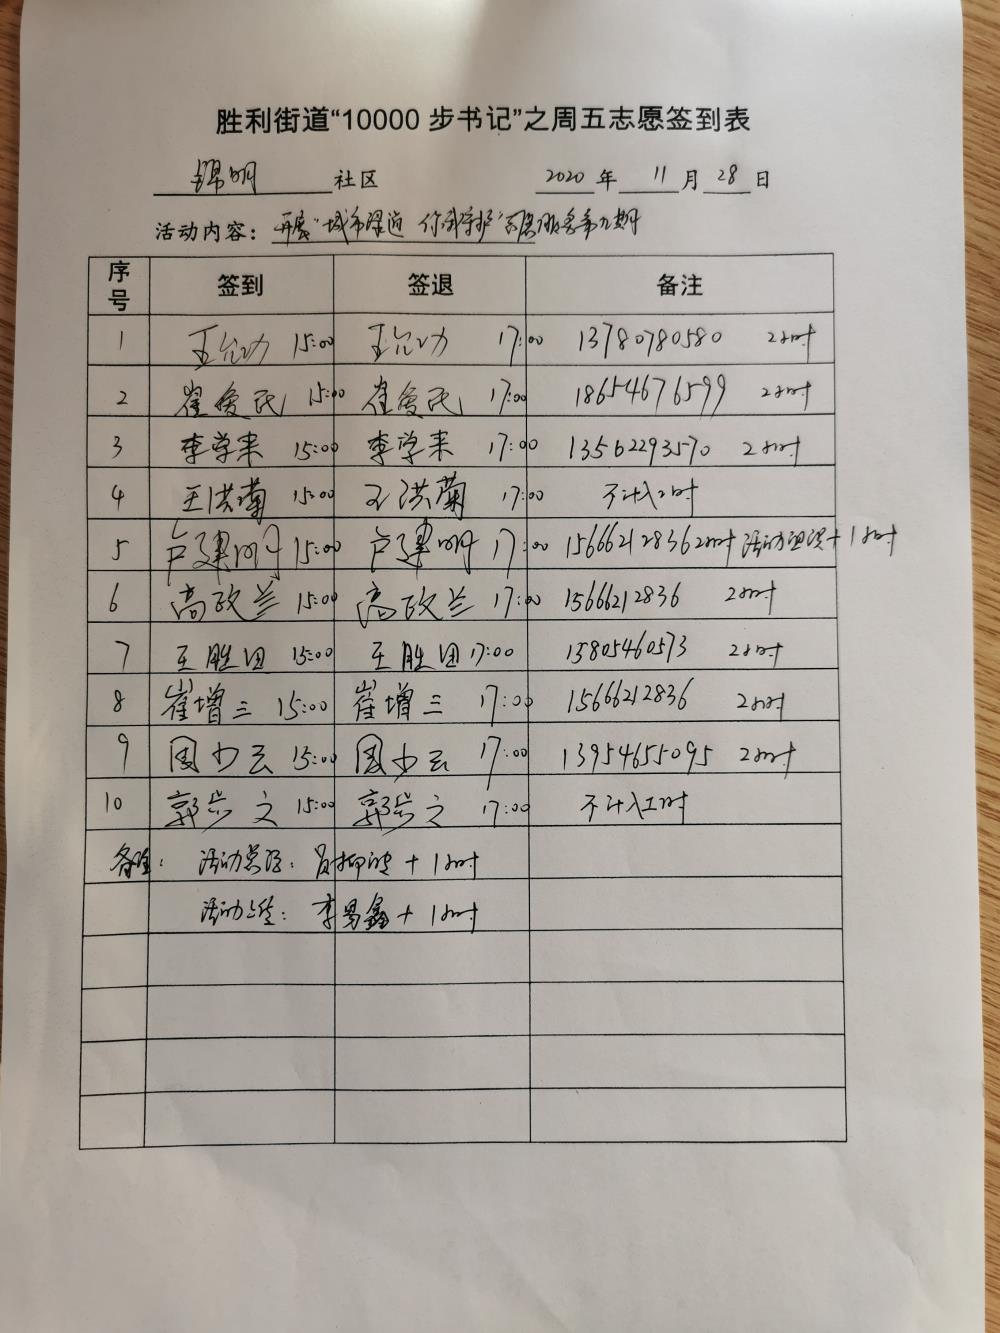 胜利街道“10000 步书记”之周五志愿签到表
锦明 社区 2020 年 11 月 28 日
活动内容： 开展“城市绿道 你我守护”志愿服务第九期
序号 签到 签退 备注
1 王允功 15:00 王允功 17:00 13780780580 2小时
2 崔俊民 15:00 崔俊民 17:00 18654676599 2小时
3 李学来 15:00 李学来 17:00 13562293570 2小时
4 王洪菊 15:00 王洪菊 17:00 不计入工时
5 卢建明 15:00 卢建明 17:00 15666212836 2小时 活动组织+1小时
6 高政兰 15:00 高政兰 17:00 15666212836 2小时
7 王胜田 15:00 王胜田 17:00 15805460573 2小时
8 崔增三 15:00 崔增三 17:00 15666212836 2小时
9 周少云 15:00 周少云 17:00 13954655095 2小时
10 郭 文 15:00 郭 文 17:00 不计入工时
备注： 活动 ： +1小时
活动上传： 李男鑫+1小时